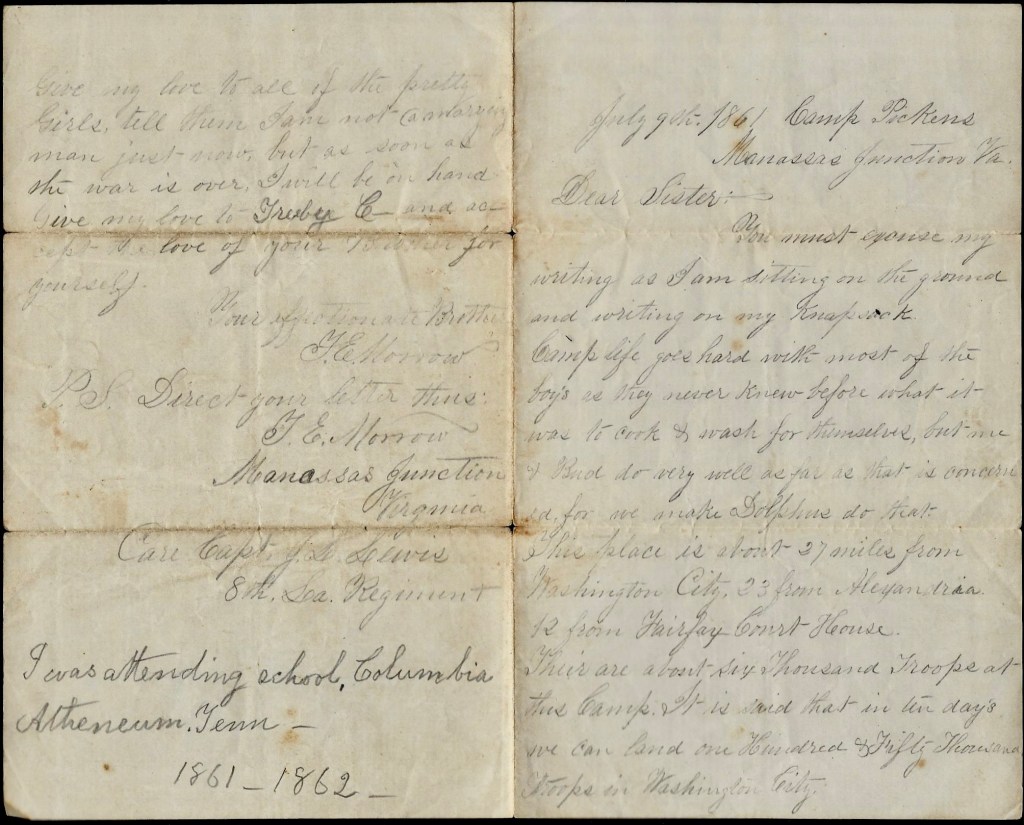 July 9th. 1861 Camp Pickens
Manassas Junction Va.
Dear Sister:-
You must excuse my
writing as I am sitting on the ground
and writing on my Knapsack.
Camp life goes hard with most of the
boy's as they never knew before what it
was to cook & wash for themselves, but me
& Rud do very well as far as that is concern
ed, for we make Dolphus do that.
This place is about 27 miles from
Washington City, 23 from Alexandria
12 from Fairfax Court House.
Their are about six Thousand Troops at
this Camp. It is said that in ten day's
we can land one Hundred & Fifty Thousand
troops in Washington City.
Give my love to all of the pretty
Girls, tell them I am not a marrying
man just now, but as soon as
the war is over, I will be on hand
Give my love to C— and ac-
cept the love of your Brother for
yourself.
Your affectionate Brother
T.E. Morrow
P.S. Direct your letter thus:
T.E. Morrow
Manassas Junction
Virginia
Care Capt. J.L. Lewis
8th. La. Regiment
I was attending school, Columbia
Atheneum. Tenn —
1861 — 1862 —